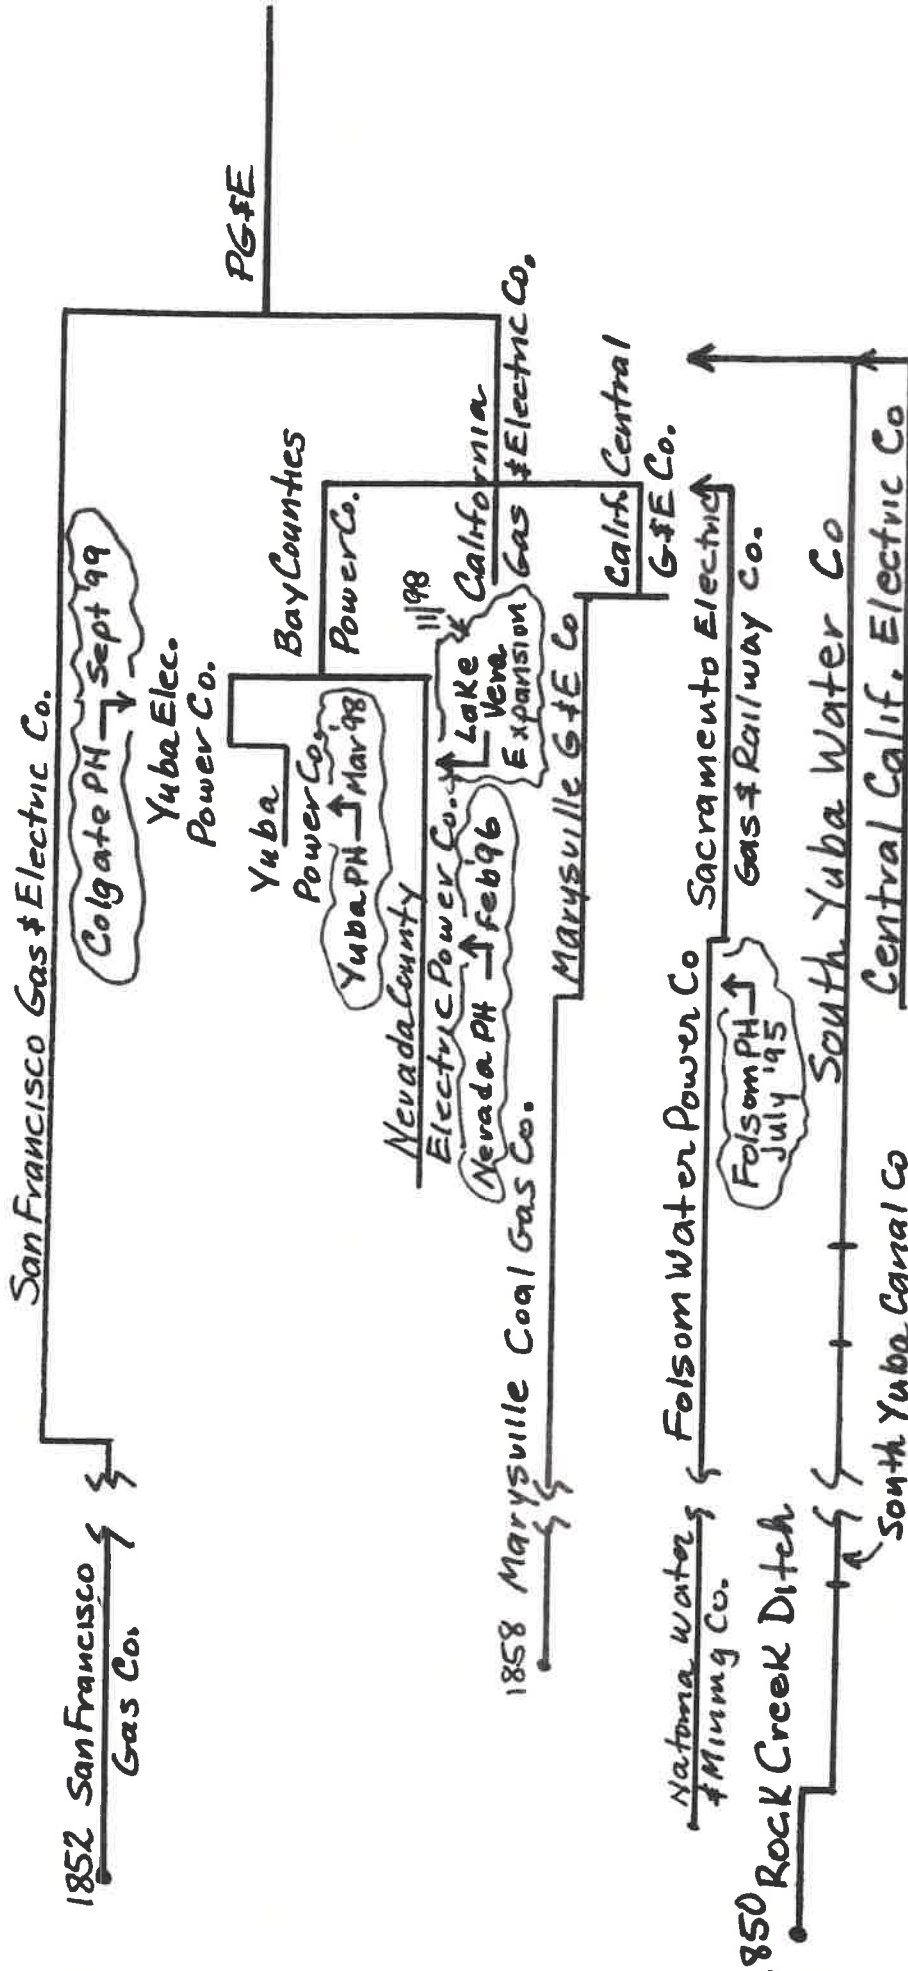 San Francisco Gas & Electric Co.
1852 San Francisco
Gas Co.
Colgate PH → Sept '99
Yuba Elec.
Power Co.
PG&E
Yuba
Power Co.
Yuba PH → Mar '98
Bay Counties
Power Co.
Nevada County
Electric Power Co.
Nevada PH → Feb '96
11/98
Lake
Vera
Expansion
California
Gas & Electric Co.
1858 Marysville Coal Gas Co.
Marysville G&E Co
Calif. Central
G&E Co.
Natoma Water
& Mining Co.
Folsom Water Power Co
Folsom PH →
July '95
Sacramento Electric
Gas & Railway Co.
850 Rock Creek Ditch
South Yuba Canal Co
South Yuba Water Co
Central Calif. Electric Co